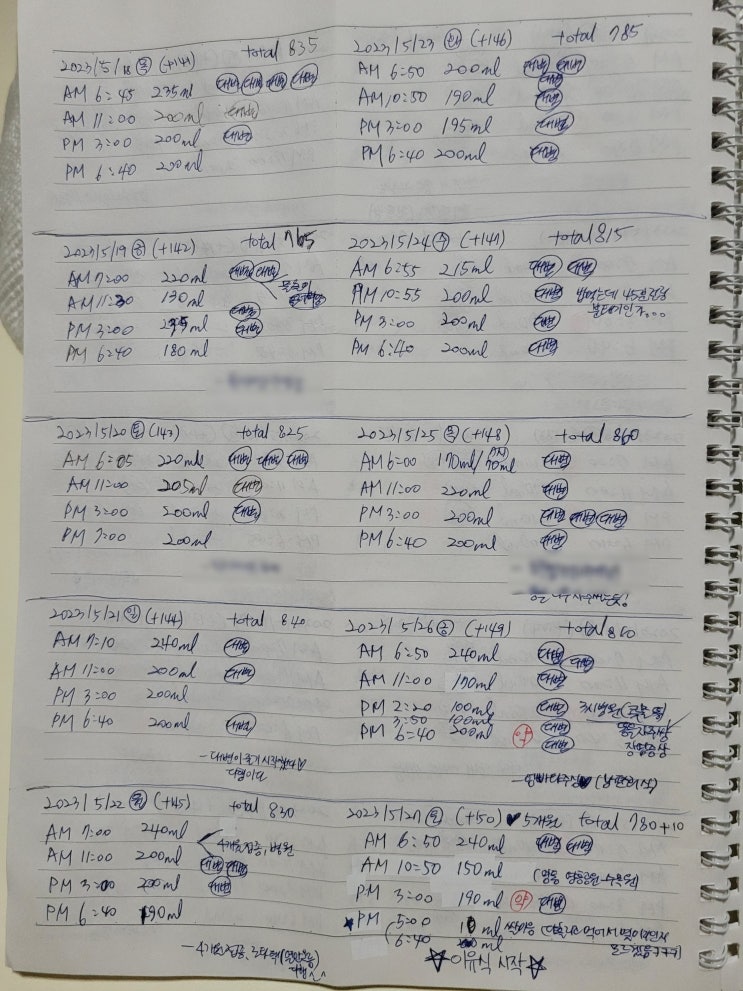 2023/5/18 (목) (+141) total 835
AM 6:45 235ml 대변 대변 대변 대변
AM 11:00 200ml 대변
PM 3:00 200ml 대변
PM 6:40 200ml
2023/5/19 (금) (+142) total 765
AM 7:00 220ml 대변 대변
AM 11:30 130ml 대변
PM 3:00 235ml 대변
PM 6:40 180ml
2023/5/20 (토) (143) total 825
AM 6:05 220ml 대변 대변 대변
AM 11:00 205ml 대변
PM 3:00 200ml 대변
PM 7:00 200ml
2023/5/21 (일) (+144) total 840
AM 7:10 240ml 대변
AM 11:00 200ml 대변
PM 3:00 200ml
PM 6:40 200ml 대변
- 대변이 줄기 시작했다
다행이다
2023/5/22 (월) (+145) total 830
AM 7:00 240ml
4개월접종, 병원
AM 11:00 200ml 대변 대변
PM 3:00 200ml 대변
PM 6:40 190ml
- 4개월접종, 로타
2023/5/23 (화) (+146) total 785
AM 6:50 200ml 대변 대변 대변
AM 10:50 190ml 대변
PM 3:00 195ml 대변
PM 6:40 200ml 대변
2023/5/24 (수) (+147) total 815
AM 6:55 215ml 대변 대변
AM 10:55 200ml 대변 밥먹는데 45분걸림
PM 3:00 200ml 대변
PM 6:40 200ml 대변
2023/5/25 (목) (+148) total 860
AM 6:00 170ml/70ml 대변
AM 11:00 220ml 대변
PM 3:00 200ml 대변 대변 대변
PM 6:40 200ml 대변
2023/5/26 (금) (+149) total 810
AM 6:50 240ml 대변 대변
AM 11:00 170ml 대변
PM 2:20 100ml 대변 3시병원
3:50 100ml 대변 똥을자주쌈
6:40 200ml 약 대변 장염증상
2023/5/27 (토) (+150) ♥ 5개월 total 780+10
AM 6:50 240ml 대변 대변
AM 10:50 150ml
PM 3:00 190ml 약 대변
★PM 5:00 10ml 쌀미음
6:40 ml
☆이유식 시작☆